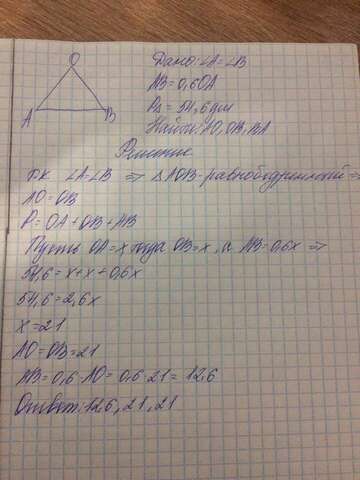 O
A B
Дано: ∠A=∠B
AB=0,6OA
P△=54,6дм
Найти: AO, OB, BA
Решение
т.к ∠A=∠B => △AOB-равнобедренный =>
AO=OB
P=OA+OB+AB
Пусть OA=x тогда OB=x, а AB=0,6x =>
54,6=x+x+0,6x
54,6=2,6x
x=21
AO=OB=21
AB=0,6·AO=0,6·21=12,6
Ответ: 12,6, 21, 21